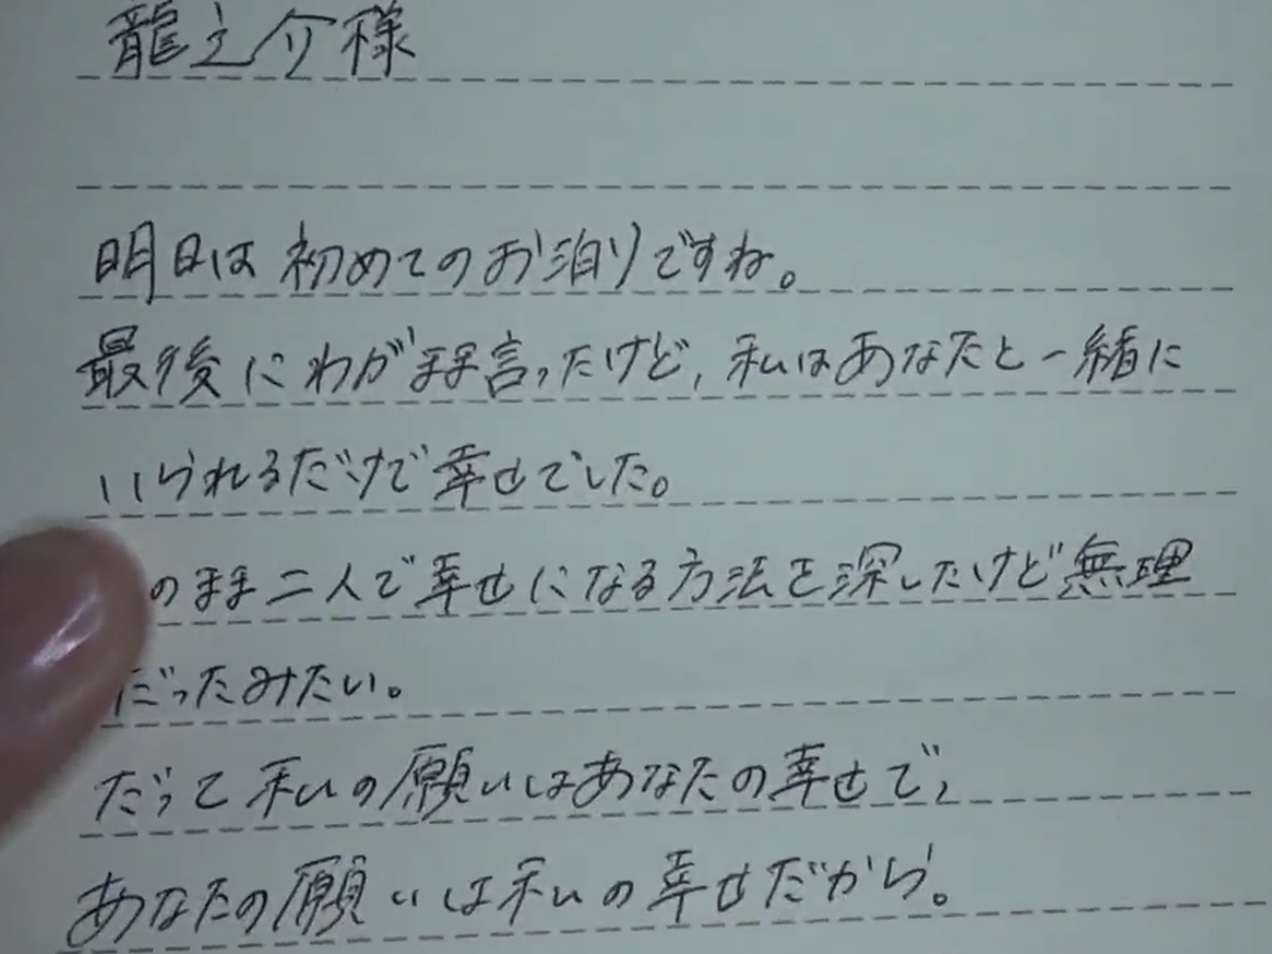 龍之介様
明日は初めてのお泊りですね。
最後にわがまま言ったけど、私はあなたと一緒に
いられるだけで幸せでした。
のまま二人で幸せになる方法を探したけど無理
だったみたい。
だって私の願いはあなたの幸せで、
あなたの願いは私の幸せだから。